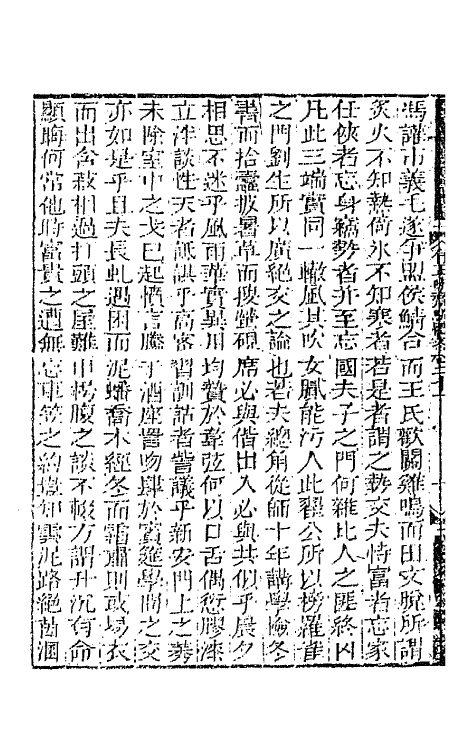 馮讙市義毛遂爭盟侯鯖合而王氏歡關雞鳴而田文脫所謂
炙火不知熱衛氷不知寒者若是者謂之勢交夫恃富者忘家
任俠者忘身藉勢者并至忘國夫子之門何雜比人之匪終凶
凡此三端實同一轍風其吹女膩能汚人此翟公所以榜羅雀
之門劉生所以廣絕交之論也若夫總角從師十年講學儉冬
書而拾蠹披暑草而搜螢硯席必與偕出入必與共似乎晨夕
相思不迷乎風雨華實異用均贊於韋弦何以口舌偶愆膠漆
立泮談性天者詆誤乎高密習訓詁者訾議乎新安門上之莠
未除室中之戈已起憤言騰于酒座醫吻肆於賓筵學問之交
亦如是乎且夫長虬遇困而泥蟠喬木經冬而霜肅則敢場衣
而出含菽相過打頭之屋難申捫腹之談不輟方謂升沉有命
顯晦何常他時富貴之遭無忘車笠之約豈知雲泥路絕茵溷